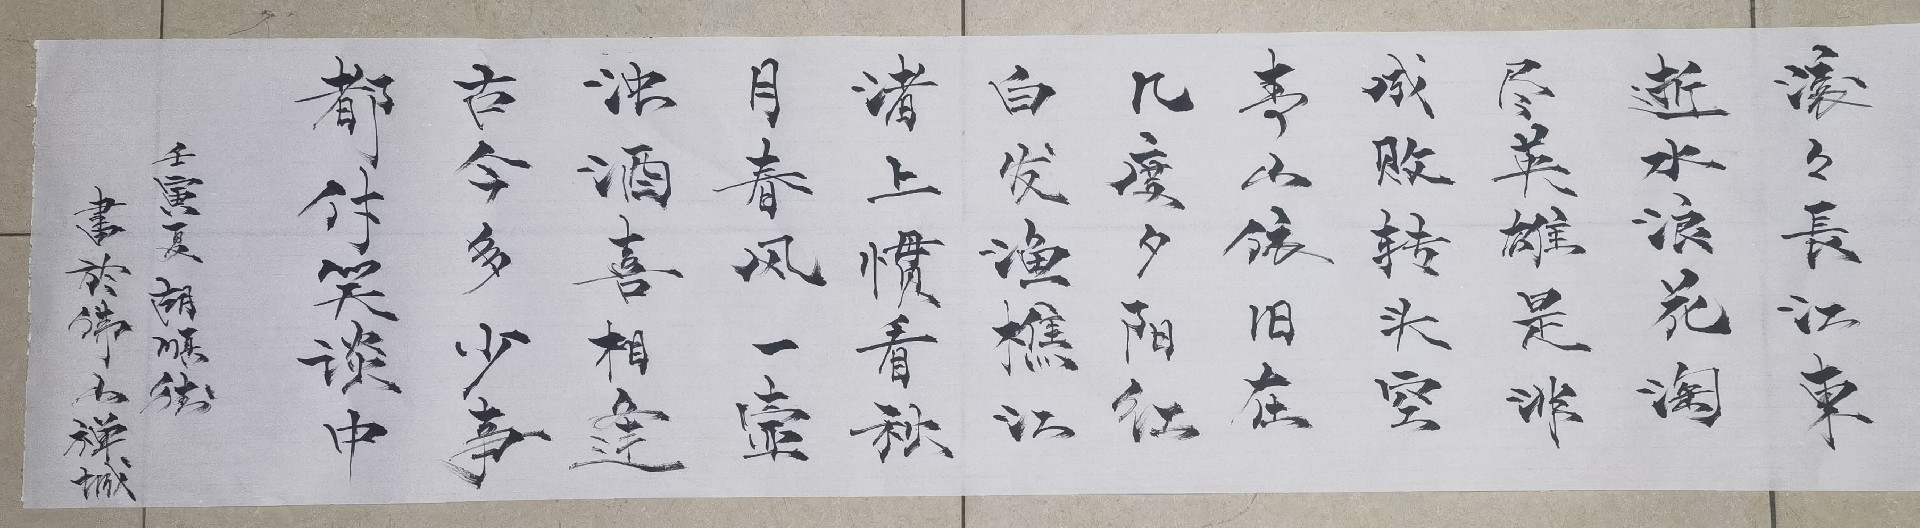 滚々長江東
逝水浪花淘
尽英雄是非
成败转头空
青山依旧在
几度夕阳红
白发渔樵江
渚上惯看秋
月春风一壶
浊酒喜相逢
古今多少事
都付笑谈中
壬寅夏胡順
書於佛山禅城